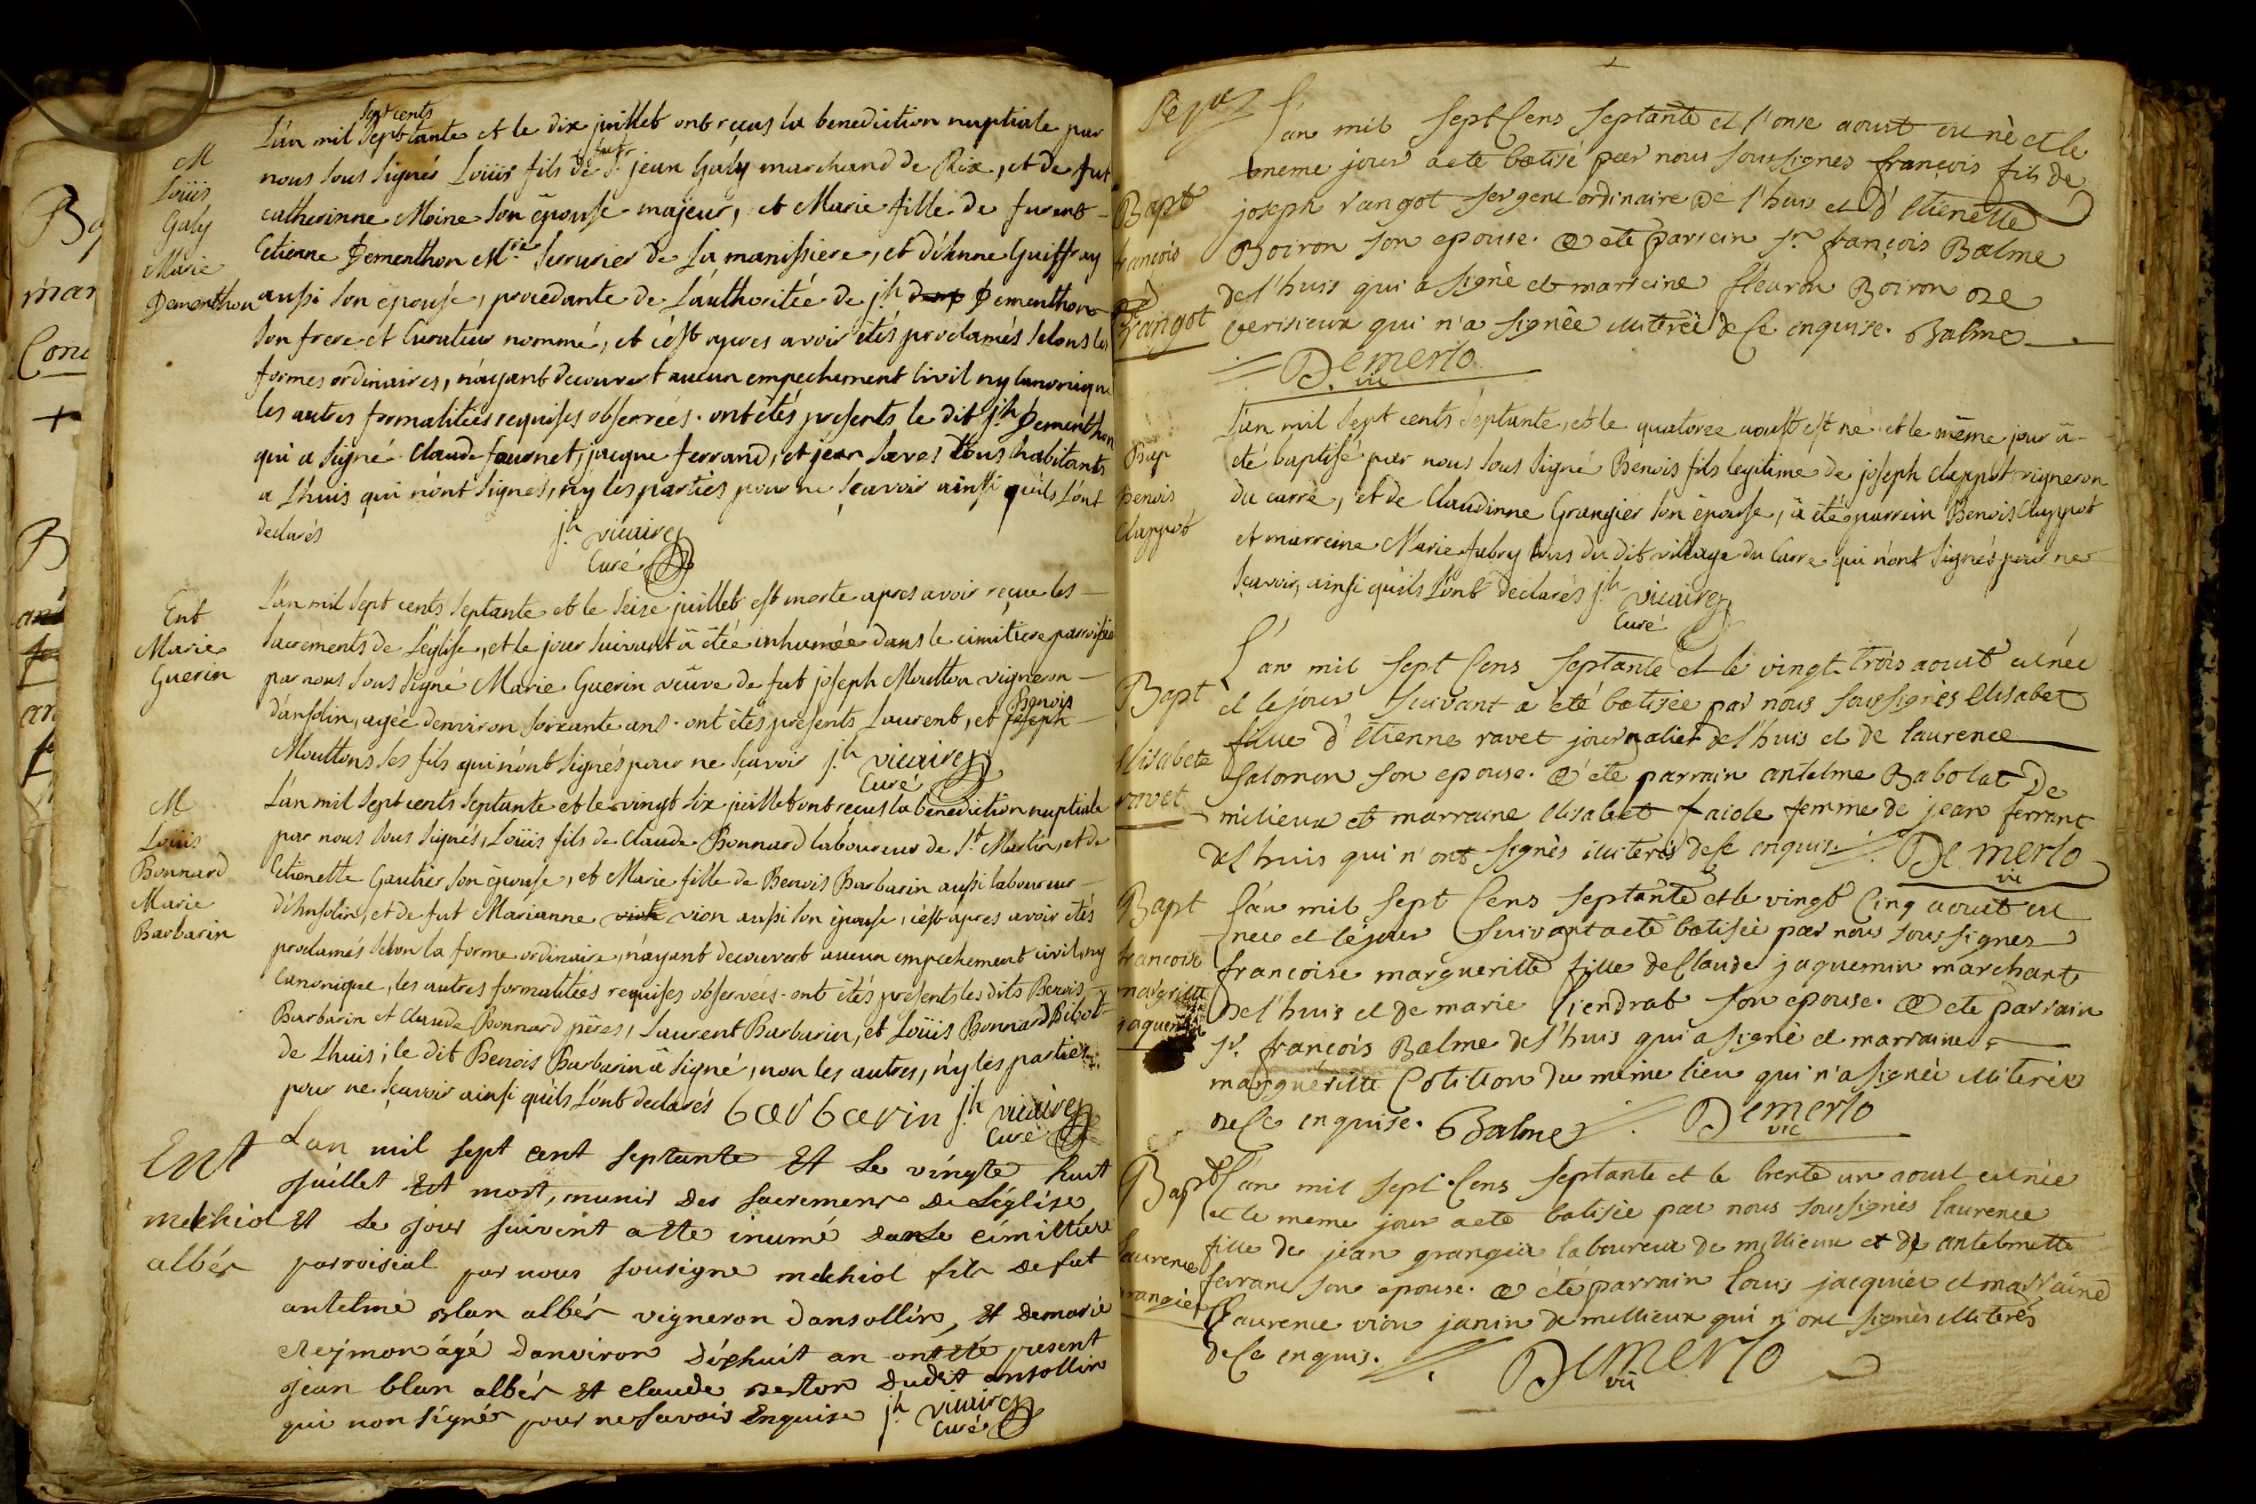 M
Loüis
Galy
Marie
Dementhon
sept cents
L'an mil septtante et le dix juillet ont reçus la benediction nuptiale par
nous sous signés Loüis fils de Sr jean Galy marchand de Rix, et de fut
catherinne Moine son épouse majeur, et Marie fille de furent
Etienne Dementhon Mtre serrurier de La manissiere, et d'Anne Guiffray
aussi son épouse, procedante de L'authoritée de jh Dementhon
son frere et Curateur nommé, et c'est apres avoir étés proclamés selons les
formes ordinaires, n'ayant decouvert aucun empechement civil ny canonique
les autres formalitées requises observées. ont étés presents le dit jh Dementhon
qui a signé. Claude fournet, jacque ferrand, et jean Saves tous habitants
a Lhuis qui n'ont signés, ny les parties pour ne sçavoir ainsi qu'ils L'ont
declarés jh vicaire
Curé
Ent
Marie
Guerin
L'an mil sept cents septante et le seise juillet est morte apres avoir reçue les
sacrements de L'église, et le jour suivant a étée inhumée dans le cimitiere paroissial
par nous sous signé Marie Guerin veüve de fut joseph Moutton vigneron
d'ansolin, agée denviron soixante ans. ont étés presents Laurent, et joseph Benois
Mouttons ses fils qui n'ont signés pour ne sçavoir jh vicaire
Curé
M
Loüis
Bonnard
Marie
Barbarin
L'an mil sept cents septante et le vingt six juillet ont reçus la benediction nuptiale
par nous sous signés, Loüis fils de Claude Bonnard laboureur de St Martin, et de
Etienette Gautier son épouse, et Marie fille de Benois Barbarin aussi laboureur
d'Ansolin, et de fut Marianne viok vion aussi son épouse, c'est apres avoir étés
proclamés selon la forme ordinaire, n'ayant decouvert aucun empechement civil, ny
Canonique, les autres formalitées requises observées. ont étés presents les dits Benois
Barbarin et Claude Bonnard péres, Laurent Barbarin, et Loüis Bonnard Bibot
de Lhuis; le dit Benois Barbarin a signé, non les autres, n'y les parties
pour ne sçavoir ainsi qu'ils L'ont declarés barbarin jh vicaire
Curé
Ent
melchiol
albér
Lan mil sept cent septante Et Le vingte huit
juillet Est mort, munis des sacremens de Léglise
Et Le jour suivent a ette inumé dans Le cimittiére
parroisial par nous sousigne melchiol fils de fut
antelme blan albér vigneron dansollin, Et de marie
Reymon ágé danviron dixhuit an ont ette present
jean blan albér Et claude berlon dudit ansollin
qui non signér pour ne savois Enquise jh vicaire
Curé
Bapt
françois
Rangot
L'an mil sept Cens septante et l'onse aoust est nè et le
meme jour a eté batisé par nous soussignes françois fils de
joseph rangot sergent ordinaire de l'huis et d'etienette
Boiron son epouse. a eté parrein sr. françois Balme
de l'huis qui a signè et marreine fleuron Boiron de
Cerisieux qui n'a signée illiterée de ce enquise. Balme
Demerlo
vic
Bap
Benois
Clappot
L'an mil sept cents septante, et le quatorze aoust est né et le même jour a
eté baptisé par nous sous signé Benois fils legitime de joseph Clappot vigneron
du carre, et de Claudinne Grangier son épouse, a été parrein Benois Clappot
et marreine Marie fabry tous du dit village du Carre qui n'ont signés pour ne
sçavoir, ainsi qu'ils L'ont declarés jh vicaire
Curé
Bapt
elisabete
ravet
L'an mil sept Cens septante et le vingt trois aoust est née
et le jour suivant a eté batisée par nous soussignès elisabet
fille d'etienne ravet journalier de l'huis et de laurence
salomon son epouse. a eté parrain antelme Babolat de
milieux et marraine elisabet faiole femme de jean ferrant
de l'huis qui n'ont signès illiterès de ce enquis. De merlo
vic
Bapt
francoise
margritte
jaquemin
L'an mil sept Cens septante et le vingt Cinq aoust est
née et le jour suivant a eté batisée par nous soussignes
francoise marguerritte fille de Claude jaquemin marchant
de l'huis et de marie Gendrat son epouse. a eté parrain
sr. françois Balme de l'huis qui a signé et marraine
marguerritte Cotitton du même lieu qui n'a signée illiterée
de ce enquise. Balme Demerlo
vic
Bapt
laurence
grangier
L'an mil sept Cens septante et le trente un aoust est née
et le meme jour a eté batisée par nous soussignés laurence
fille de jean grangier laboureur de millieux et de antelmette
ferrant son epouse. a été parrain louis jacquier et marraine
Laurence vion janin de millieux qui n'ont signès illiterès
de ce enquis. Demerlo
vic